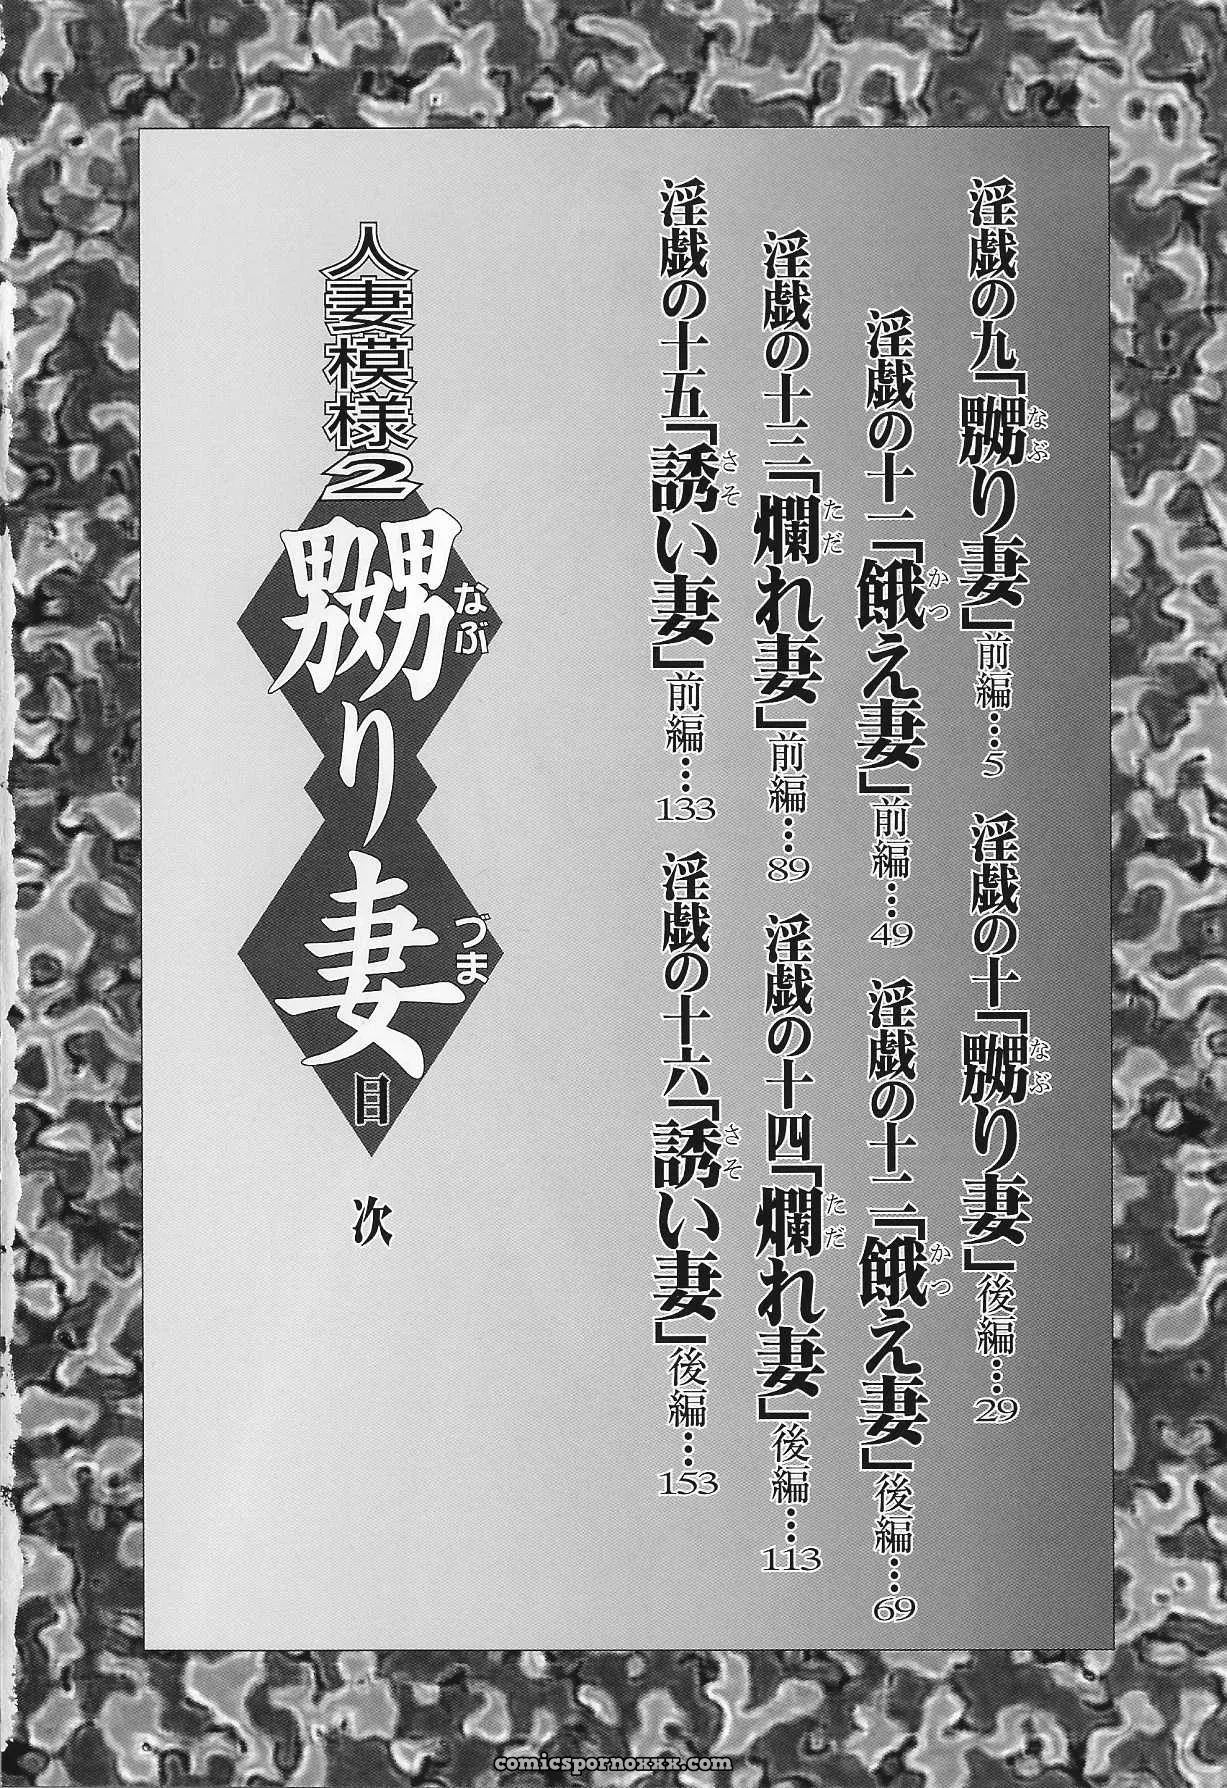 淫戯の九「嬲り妻」前編…5
なぶ
淫戯の十「嬲り妻」後編…29
なぶ
淫戯の十一「餓え妻」前編…49
かつ
淫戯の十二「餓え妻」後編…69
かつ
淫戯の十三「爛れ妻」前編…89
ただ
淫戯の十四「爛れ妻」後編…113
ただ
淫戯の十五「誘い妻」前編…133
さそ
淫戯の十六「誘い妻」後編…153
さそ
人妻模様2
嬲り妻
なぶ づま
目次
comicspornoxxx.com